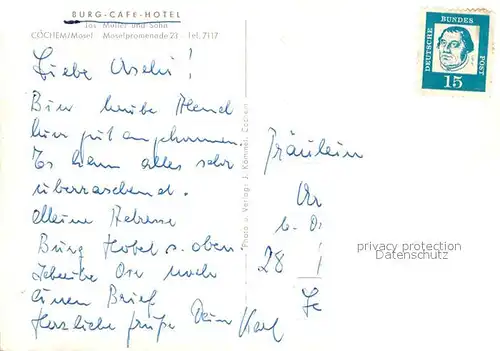 BURG-CAFE-HOTEL
Jos. Müller und Sohn
COCHEM/Mosel Moselpromenade 23 Tel. 7117
Liebe Uschi!
Bin heute Abend
hier gut angekommen.
Es kam alles sehr
überraschend.
Meine Adresse
Burg Hotel s. oben.
Schreibe Dir noch
einen Brief
Herzliche Grüße Dein Karl
Photo u. Verlag: J. Kömmet, Cochem
DEUTSCHE BUNDES POST
15
Fräulein
28
privacy protection
Datenschutz